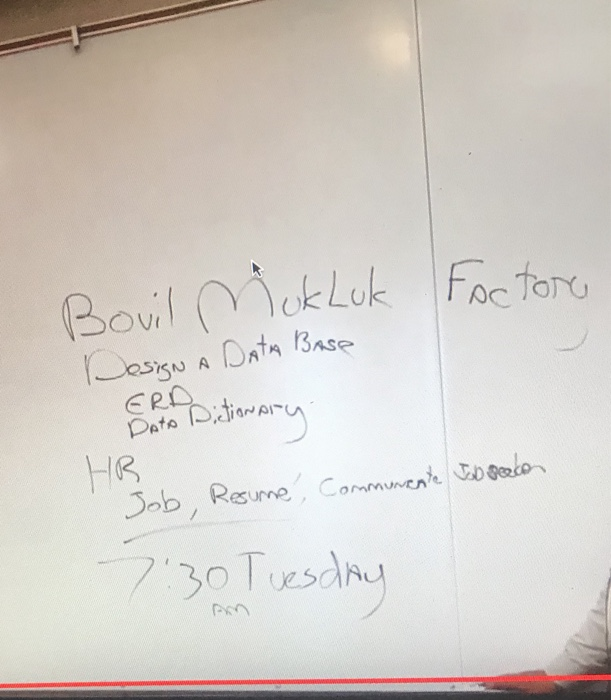 Bovil MukLuk Factory
Design A Data Base
ERD
Data Dictionary
HR
Job, Resumé, Communicate Job seeker
7:30 Tuesday